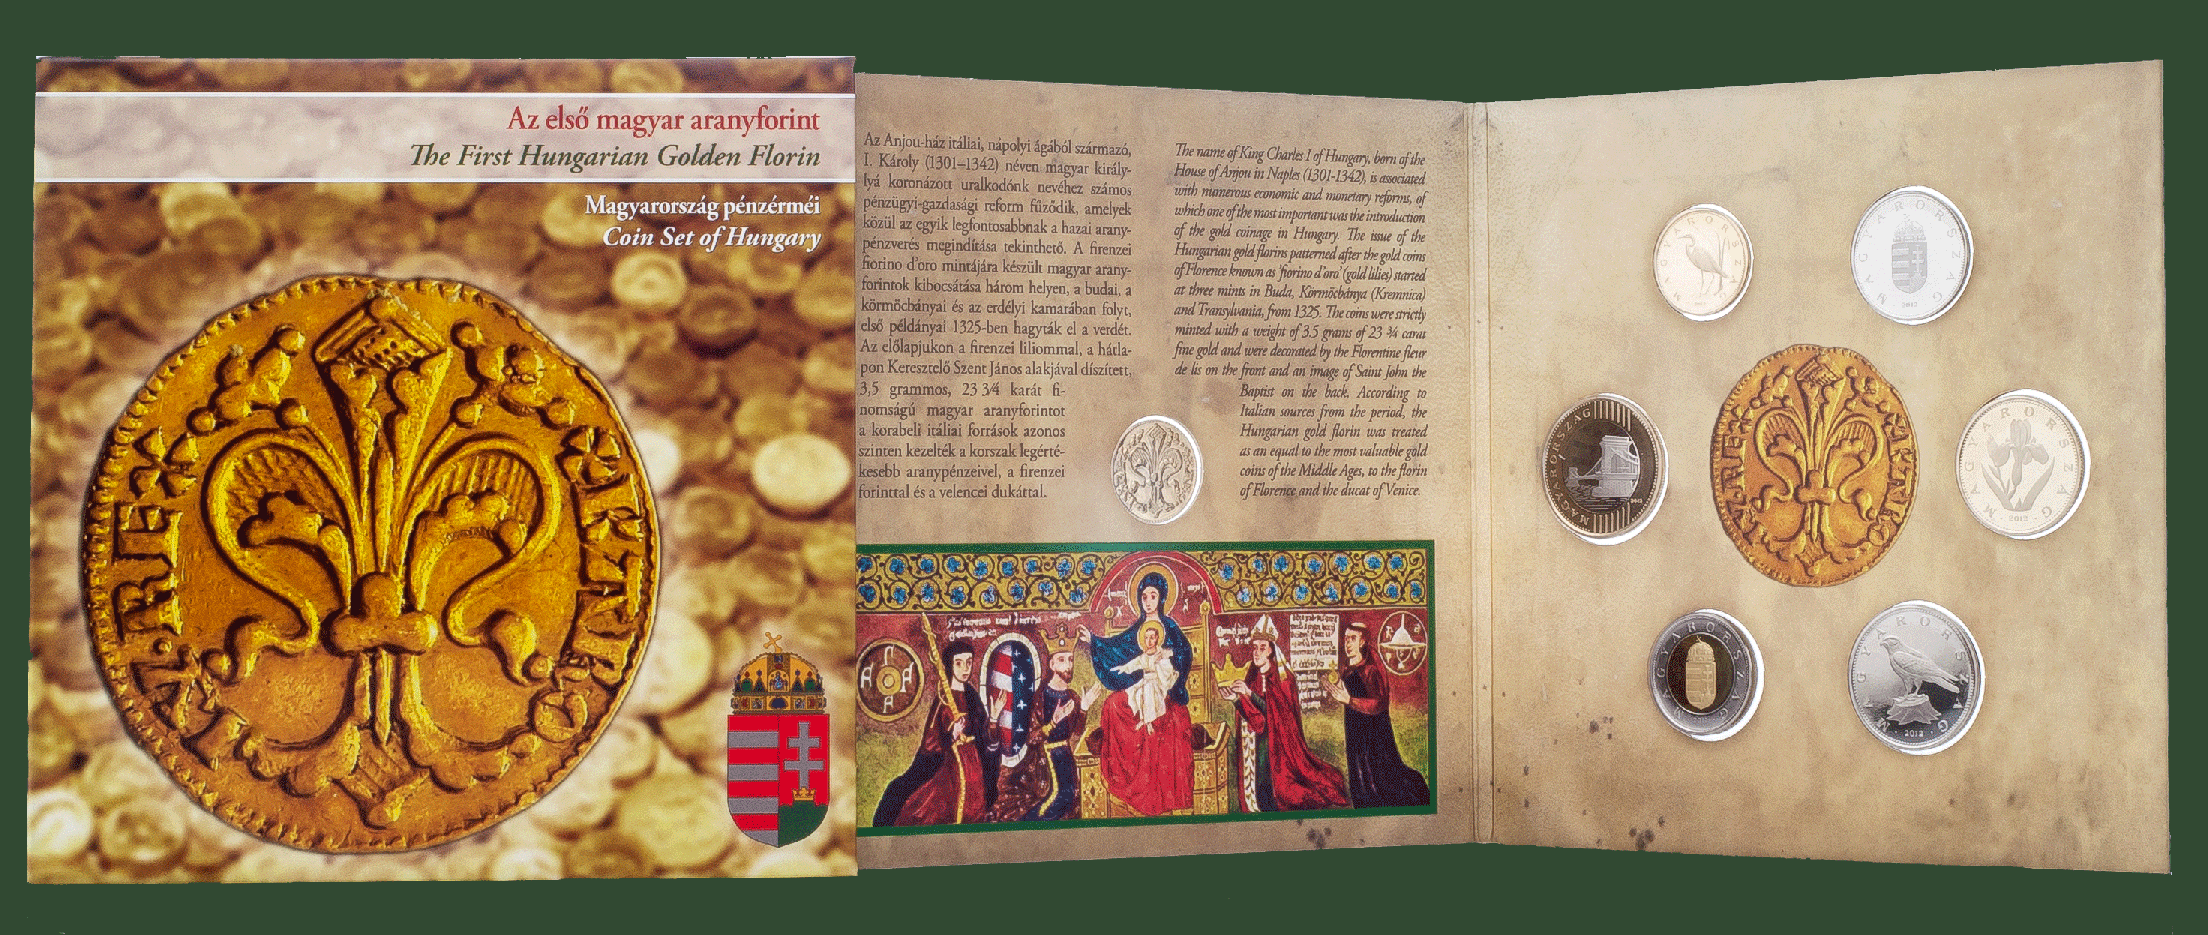 Az első magyar aranyforint
The First Hungarian Golden Florin
Magyarország pénzérméi
Coin Set of Hungary
Az Anjou-ház itáliai, nápolyi ágából származó,
I. Károly (1301–1342) néven magyar király-
lyá koronázott uralkodónk nevéhez számos
pénzügyi-gazdasági reform fűződik, amelyek
közül az egyik legfontosabbnak a hazai arany-
pénzverés megindítása tekinthető. A firenzei
fiorino d'oro mintájára készült magyar arany-
forintok kibocsátása három helyen, a budai, a
körmöcbányai és az erdélyi kamarában folyt,
első példányai 1325-ben hagyták el a verdét.
Az előlapjukon a firenzei liliommal, a hátla-
pon Keresztelő Szent János alakjával díszített,
3,5 grammos, 23 3/4 karát fi-
nomságú magyar aranyforintot
a korabeli itáliai források azonos
szinten kezelték a korszak legérté-
kesebb aranypénzeivel, a firenzei
forinttal és a velencei dukáttal.
The name of King Charles I of Hungary, born of the
House of Anjou in Naples (1301-1342), is associated
with numerous economic and monetary reforms, of
which one of the most important was the introduction
of the gold coinage in Hungary. The issue of the
Hungarian gold florins patterned after the gold coins
of Florence known as 'fiorino d'oro' (gold lilies) started
at three mints in Buda, Körmöcbánya (Kremnica)
and Transylvania, from 1325. The coins were strictly
minted with a weight of 3.5 grams of 23 ¾ carat
fine gold and were decorated by the Florentine fleur
de lis on the front and an image of Saint John the
Baptist on the back. According to
Italian sources from the period, the
Hungarian gold florin was treated
as an equal to the most valuable gold
coins of the Middle Ages, to the florin
of Florence and the ducat of Venice.
MAGYARORSZÁG
MAGYARORSZÁG
2012
MAGYARORSZÁG
MAGYARORSZÁG
2012
MAGYARORSZÁG
MAGYARORSZÁG
2012